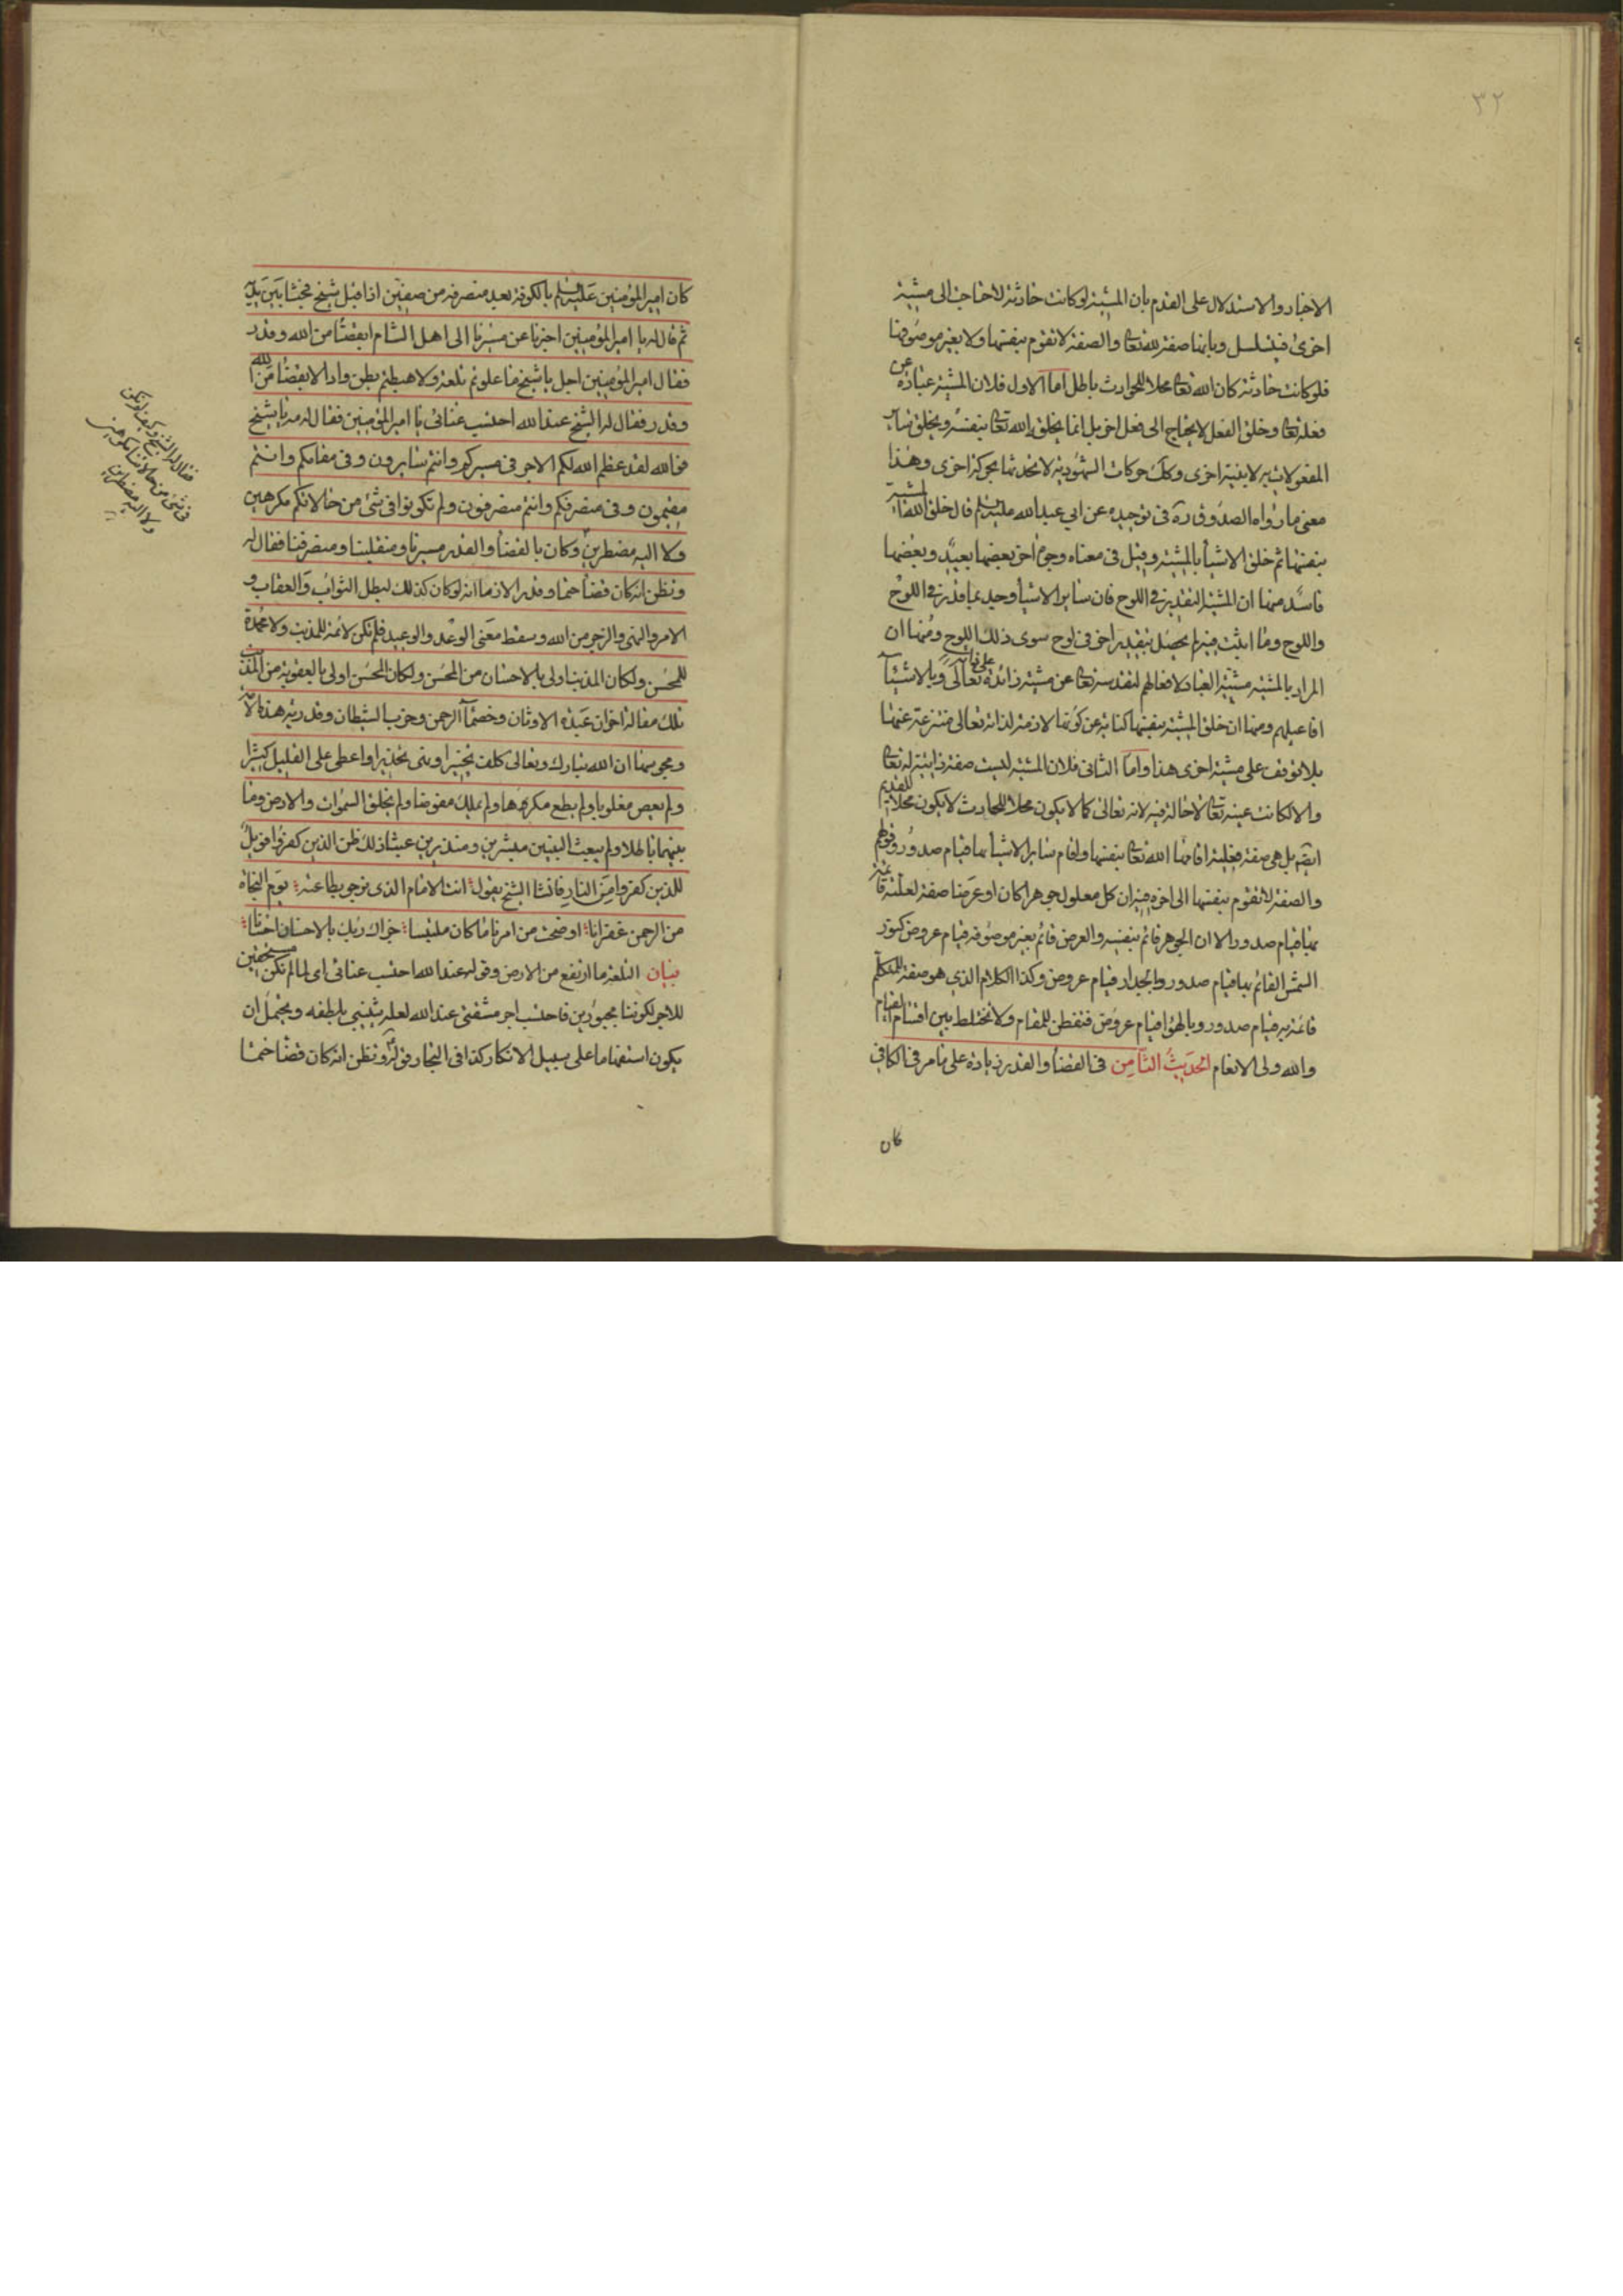 ٣٢
الاخبار والاستدلال على القدم بان المشية لو كانت حادثة لاحتاجت الى مشية
اخرى فيتسلسل وبانها صفة لله تعا والصفة لا تقوم بنفسها ولا بغير موصوفها
فلو كانت حادثة كان الله تعا محلا للحوادث باطل اما الاول فلان المشية عبارة عن
فعله تعا وخلق الفعل لا يحتاج الى فعل اخر بل انما يخلقه الله تعا بنفسه ويخلق ساير
المفعولات به لا بنية اخرى وكك حركات الشهودية لا تحدثها بحركة اخرى وهذا
معنى ما رواه الصدوق ره في توحيده عن ابي عبد الله عليه السلم قال خلق الله المشية
بنفسها ثم خلق الاشيأ بالمشية وقيل في معناه وجوه اخر بعضها بعيد وبعضها
فاسد منها ان المشية التقدير في اللوح فان ساير الاشيأ وجد بما قدر في اللوح
واللوح وما اثبت فيه لم يحصل بتقدير اخر في لوح سوى ذلك اللوح ومنها ان
المراد بالمشية مشية العباد لافعالهم لتقدسه تعا عن مشية زائدة على ذاته تعالى وبالاشيآ
افاعيلهم ومنها ان خلق المشية بنفسها كناية عن كونها لازمة لذاته تعالى منتزعة عنها
بلا توقف على مشية اخرى هذا واما الثاني فلان المشية ليست صفة ذاتية له تعا
والا لكانت عينه تعا لاحالة فيه لانه تعالى كما لا يكون محلا للحادث لا يكون محلا للقديم
ايضا بل هي صفة فعلية اقامها الله تعا بنفسها واقام ساير الاشيأ بها قيام صدور وقولهم
والصفة لا تقوم بنفسها الى اخره فيه ان كل معلول جوهرا كان او عرضا صفة لعلته قائمة
بها قيام صدور الا ان الجوهر قائم بنفسه والعرض قائم بغير موصوفه قيام عروض كنور
الشمس القائم بها قيام صدور وبالجدار قيام عروض وكذا الكلام الذي هو صفة للمتكلم
قائمة به قيام صدور وبالهوا قيام عروض فتفطن للمقام ولا تختلط بين اقسام القيام
والله ولى الانعام الحديث الثامن في القضأ والقدر زيادة على ما مر في الكافي
كان
كان امير المؤمنين عليه السلم بالكوفة بعد منصرفه من صفين اذا قبل شيخ فجثا بين يديه
ثم قال له يا امير المؤمنين اخبرنا عن مسيرنا الى اهل الشام ابقضآ من الله وقدر
فقال امير المؤمنين اجل يا شيخ ما علوتم تلعة ولا هبطتم بطن واد الا بقضآ من الله
وقدر فقال له الشيخ عند الله احتسب عنائى يا امير المؤمنين فقال له مه يا شيخ
فوالله لقد عظم الله لكم الاجر في مسيركم وانتم سايرون وفي مقامكم وانتم
مقيمون وفي منصرفكم وانتم منصرفون ولم تكونوا في شئ من حالاتكم مكرهين
ولا اليه مضطرين وكان بالقضأ والقدر مسيرنا ومنقلبنا ومنصرفنا فقال له
وتظن انه كان قضآ حتما وقدرا لازما انه لو كان كذلك لبطل الثواب والعقاب و
الامر والنهى والزجر من الله وسقط معنى الوعد والوعيد فلم تكن لائمة للمذنب ولا محمدة
للمحسن ولكان المذنب اولى بالاحسان من المحسن ولكان المحسن اولى بالعقوبة من المذنب
تلك مقالة اخوان عبدة الاوثان وخصمآ الرحمن وحزب الشيطان وقدرية هذه الامة
ومجوسها ان الله تبارك وتعالى كلف تخييرا ونهى تحذيرا واعطى على القليل كثيرا
ولم يعص مغلوبا ولم يطع مكرها ولم يملك مفوضا ولم يخلق السموات والارض وما
بينهما باطلا ولم يبعث النبيين مبشرين ومنذرين عبثا ذلك ظن الذين كفروا فويل
للذين كفروا من النار فانشأ الشيخ يقول انت الامام الذى نرجو بطاعته يوم النجاة
من الرحمن غفرانا اوضحت من امرنا ما كان ملتبسا جزاك ربك بالاحسان احسانا
بيان التلعة ما ارتفع من الارض وقوله عند الله احتسب عنائى اى لما لم نكن مستحقين
للاجر لكوننا مجبورين فاحتسب اجر مشقتى عند الله لعله يثيبني بلطفه ويحتمل ان
يكون استفهاما على سبيل الانكار كذا في البحار قوله وتظن انه كان قضآ حتما
فقال له الشيخ وكيف لم نكن
في شئ من حالاتنا مكرهين
ولا اليه مضطرين